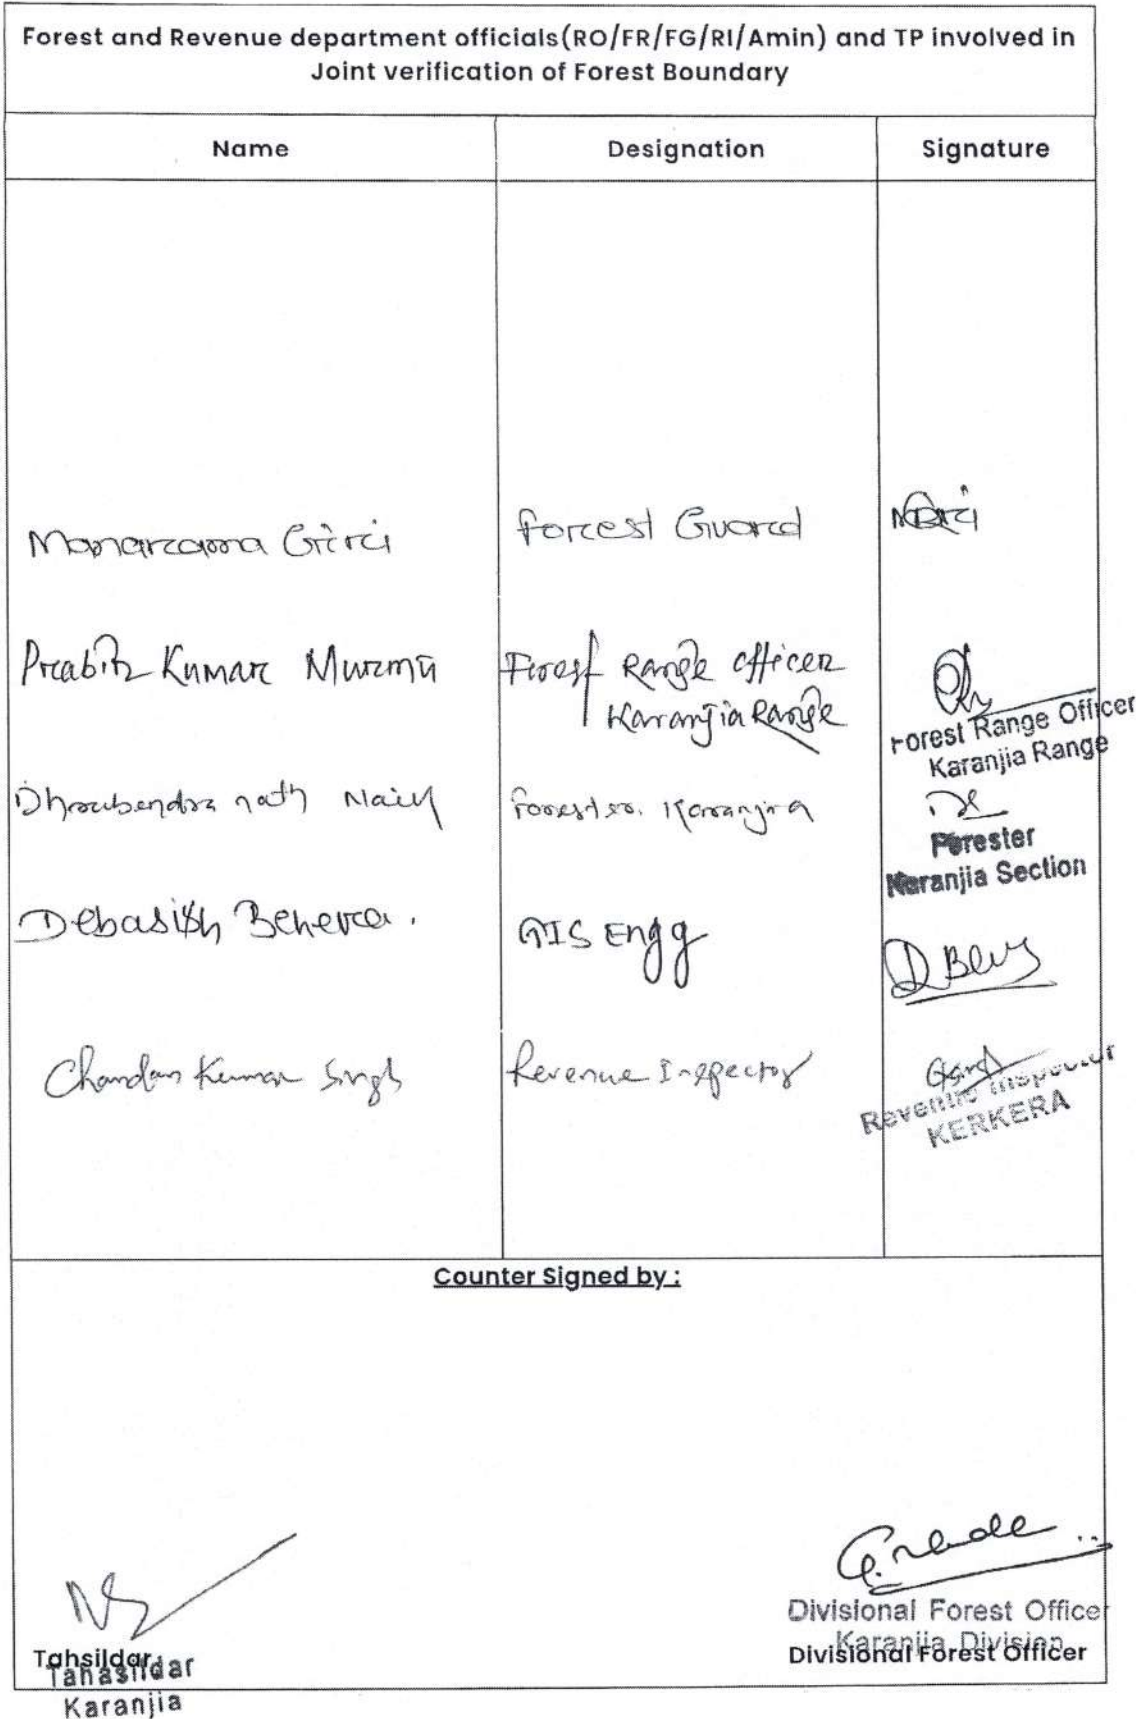 Forest and Revenue department officials(RO/FR/FG/RI/Amin) and TP involved in
Joint verification of Forest Boundary
Name Designation Signature
Manarcama Girci Forcest Guard
Prcabir Kumar Murmu Forest Range Officer
Karanjia Range
Forest Range Officer
Karanjia Range
nath Naik Forester. Karanjia
Forester
Karanjia Section
Debasish Behera. GIS Engg
D Beh
Chandan Kumar Singh Revenue Inspector
Revenue Inspector
KERKERA
Counter Signed by :
Divisional Forest Officer
Karanjia Division
Tahsildar Divisional Forest Officer
Tahasildar
Karanjia